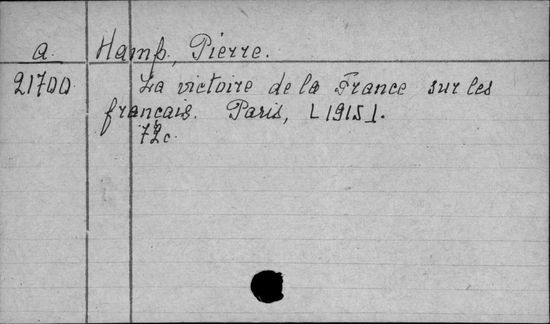 a. Hamp, Pierre.
21700 La victoire de la France sur les
français. Paris, [1915].
72 c.